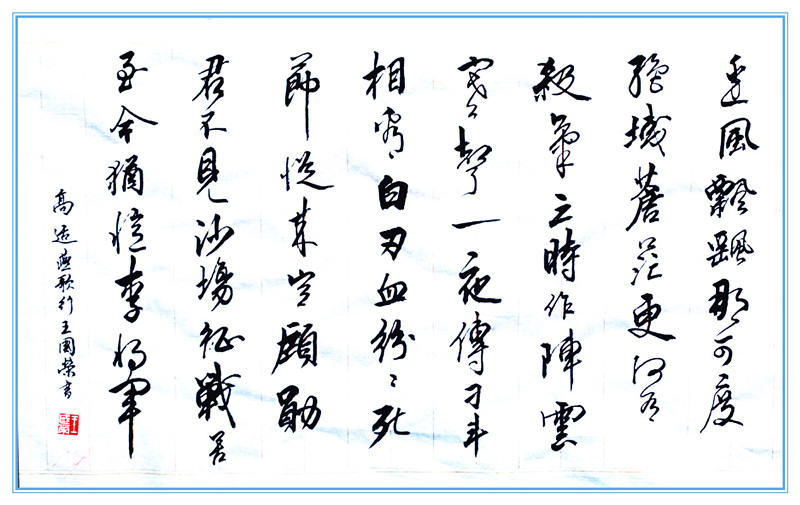 邊風飄颻那可度
絕域蒼茫更何有
殺氣三時作陣雲
寒聲一夜傳刁斗
相看白刃血紛紛死
節從來豈顧勛
君不見沙場征戰苦
至今猶憶李將軍
高适燕歌行王國榮書